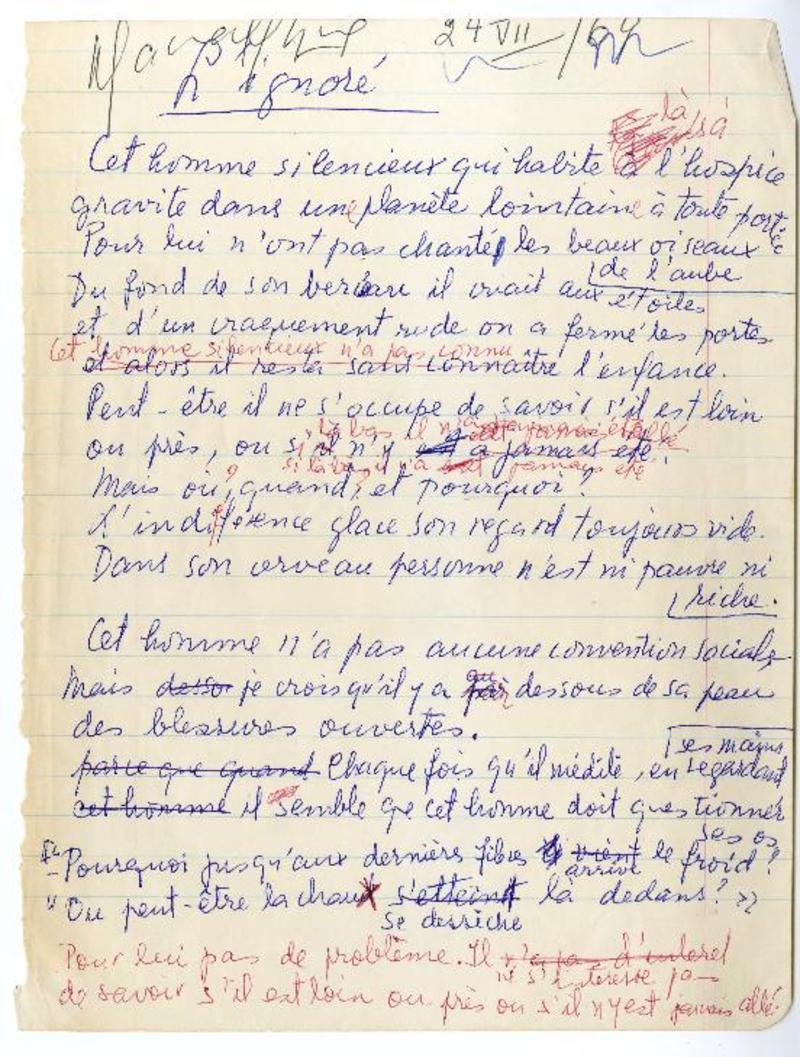 24 VII
L'ignoré
là
Cet homme silencieux qui habite à l'hospice
gravite dans une planète lointaine à toute portée
Pour lui n'ont pas chanté les beaux oiseaux
de l'aube
Du fond de son berceau il criait aux étoiles
et d'un craquement rude on a fermé les portes
Cet homme silencieux n'a pas connu
et alors il resta sans connaître l'enfance.
Peut-être il ne s'occupe de savoir s'il est loin
là bas il n'a jamais allé
ou près, ou s'il n'y est a jamais été.
si là bas il n'a jamais été
Mais où, quand, et pourquoi?
L'indifférence glace son regard toujours vide.
Dans son cerveau personne n'est ni pauvre ni
riche.
Cet homme n'a pas aucune convention sociale
au
Mais desso je crois qu'il y a par dessous de sa peau
des blessures ouvertes.
ses mains
parce que quand Chaque fois qu'il médite, en regardant
cet homme il semble que cet homme doit questionner
ses os
Pourquoi jusqu'aux dernières fibres vient le froid?
arrive
Ou peut-être la chaux s'etteint là dedans? »
se dessèche
Pour lui pas de problème. Il n'a pas d'interet
ne s'interesse pas
de savoir s'il est loin ou près ou s'il n'y est jamais allé.